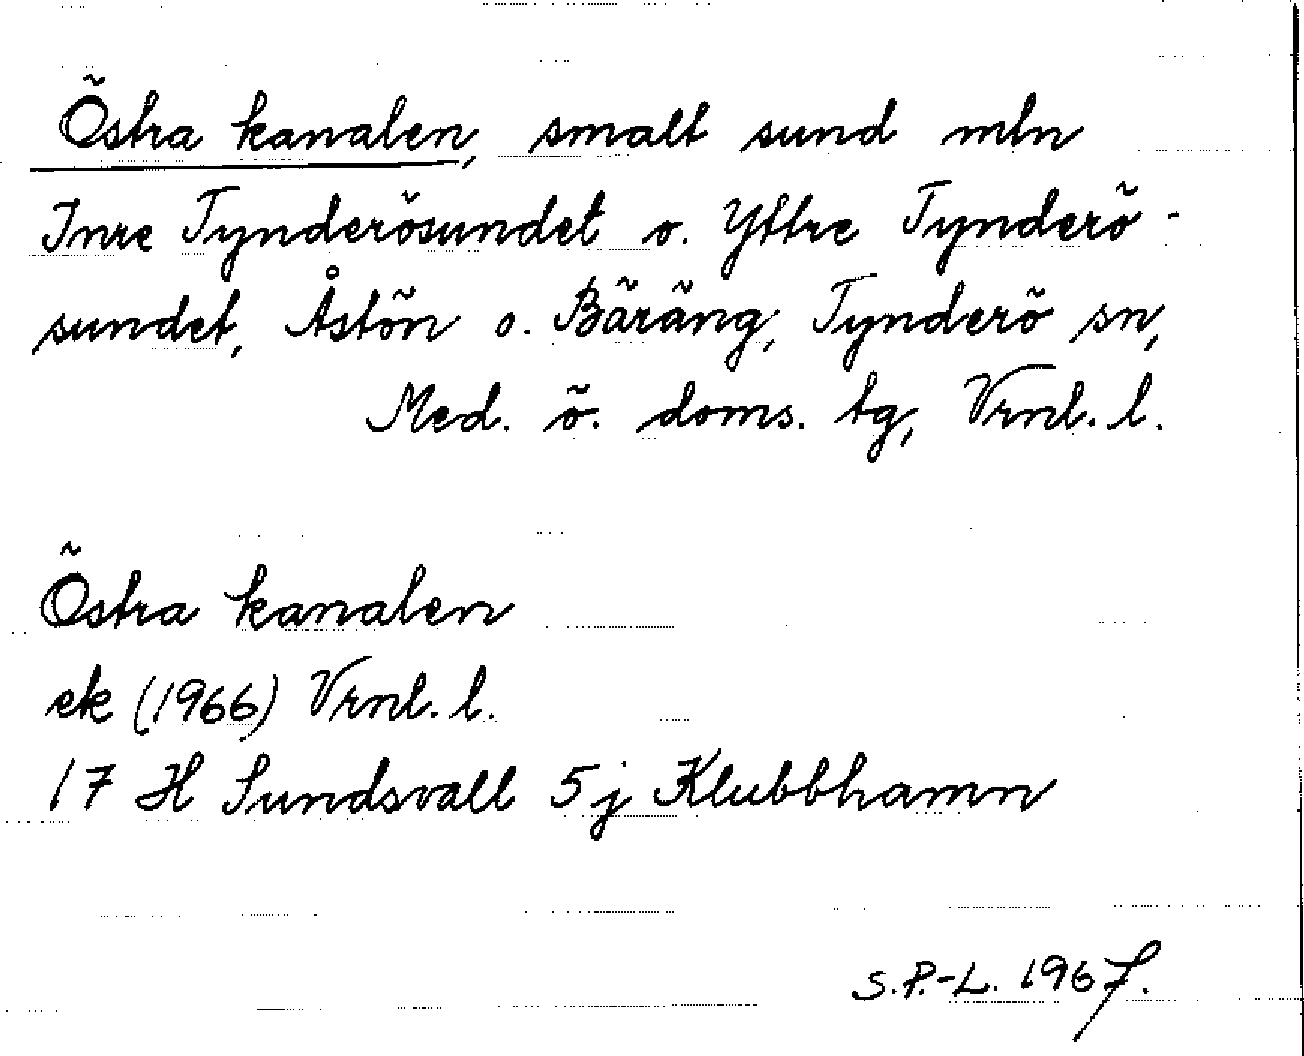 Östra kanalen, smalt sund mln
Inre Tynderösundet o. Yttre Tynderö-
sundet, Åstön o. Bäräng, Tynderö sn,
Med. ö. doms. tg, Vrnl. l.
Östra kanalen
ek (1966) Vrnl. l.
17 H Sundsvall 5 j Klubbhamn
S.P.-L. 1967.